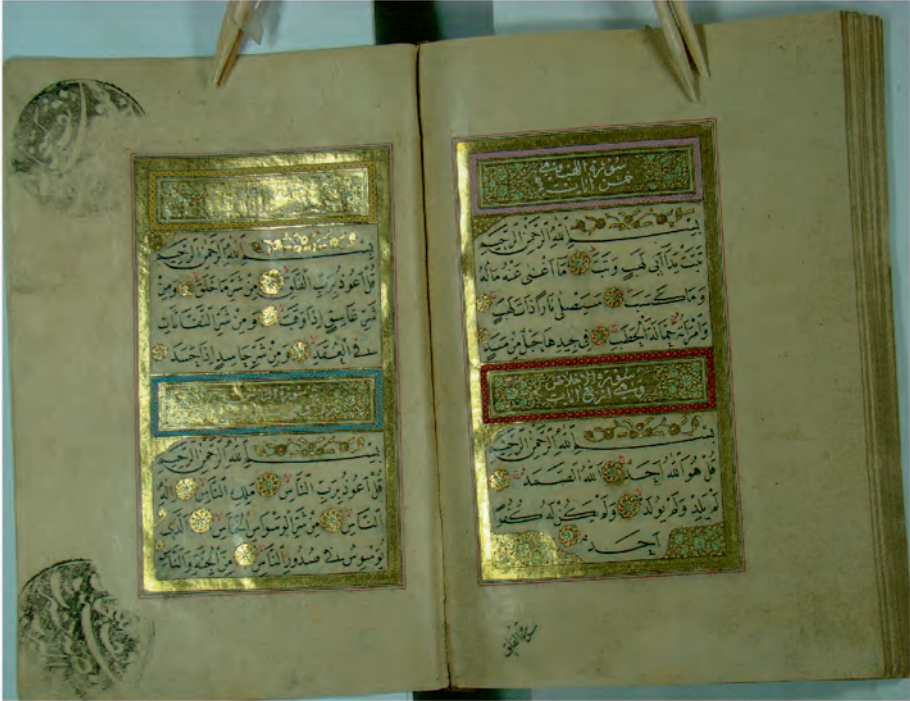 سورة اللهب وهي
خمس آيات
بِسْمِ اللّٰهِ الرَّحْمٰنِ الرَّحِيمِ
تَبَّتْ يَدَا أَبِي لَهَبٍ وَتَبَّ مَا أَغْنٰى عَنْهُ مَالُهُ
وَمَا كَسَبَ سَيَصْلٰى نَارًا ذَاتَ لَهَبٍ
وَامْرَأَتُهُ حَمَّالَةَ الْحَطَبِ فِي جِيدِهَا حَبْلٌ مِنْ مَسَدٍ
سورة الاخلاص
وهي اربع آيات
بِسْمِ اللّٰهِ الرَّحْمٰنِ الرَّحِيمِ
قُلْ هُوَ اللّٰهُ أَحَدٌ اَللّٰهُ الصَّمَدُ
لَمْ يَلِدْ وَلَمْ يُولَدْ وَلَمْ يَكُنْ لَهُ كُفُوًا
أَحَدٌ
سورة الفلق
بِسْمِ اللّٰهِ الرَّحْمٰنِ الرَّحِيمِ
قُلْ أَعُوذُ بِرَبِّ الْفَلَقِ مِنْ شَرِّ مَا خَلَقَ وَمِنْ
شَرِّ غَاسِقٍ إِذَا وَقَبَ وَمِنْ شَرِّ النَّفَّاثَاتِ
فِي الْعُقَدِ وَمِنْ شَرِّ حَاسِدٍ إِذَا حَسَدَ
سورة الناس
بِسْمِ اللّٰهِ الرَّحْمٰنِ الرَّحِيمِ
قُلْ أَعُوذُ بِرَبِّ النَّاسِ مَلِكِ النَّاسِ إِلٰهِ
النَّاسِ مِنْ شَرِّ الْوَسْوَاسِ الْخَنَّاسِ الَّذِي
يُوَسْوِسُ فِي صُدُورِ النَّاسِ مِنَ الْجِنَّةِ وَالنَّاسِ